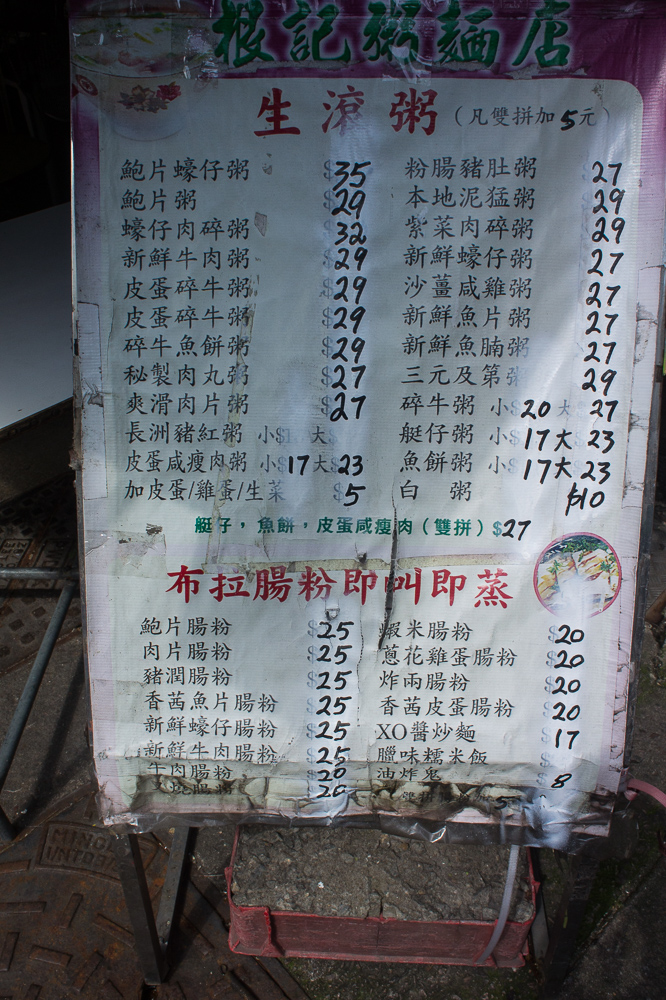 根記粥麵店
生滾粥（凡雙拼加5元）
鮑片蠔仔粥 $35
鮑片粥 29
蠔仔肉碎粥 32
新鮮牛肉粥 $29
皮蛋碎牛粥 $29
皮蛋碎牛粥 $29
碎牛魚餅粥 $29
秘製肉丸粥 $27
爽滑肉片粥 $27
長洲豬紅粥 小$ 大$
皮蛋咸瘦肉粥 小$17大$23
加皮蛋/雞蛋/生菜 $5
粉腸豬肚粥 27
本地泥猛粥 29
紫菜肉碎粥 29
新鮮蠔仔粥 27
沙薑咸雞粥 27
新鮮魚片粥 27
新鮮魚腩粥 27
三元及第粥 29
碎牛粥 小$20 大 27
艇仔粥 小$17大 23
魚餅粥 小$17大 23
白粥 $10
艇仔，魚餅，皮蛋咸瘦肉（雙拼）$27
布拉腸粉即叫即蒸
鮑片腸粉 $25
肉片腸粉 $25
豬潤腸粉 $25
香茜魚片腸粉 $25
新鮮蠔仔腸粉 $25
新鮮牛肉腸粉 25
牛肉腸粉 20
叉燒腸粉 20
蝦米腸粉 $20
蔥花雞蛋腸粉 $20
炸兩腸粉 $20
香茜皮蛋腸粉 $20
XO醬炒麵 $17
臘味糯米飯 $
油炸鬼 $8
5